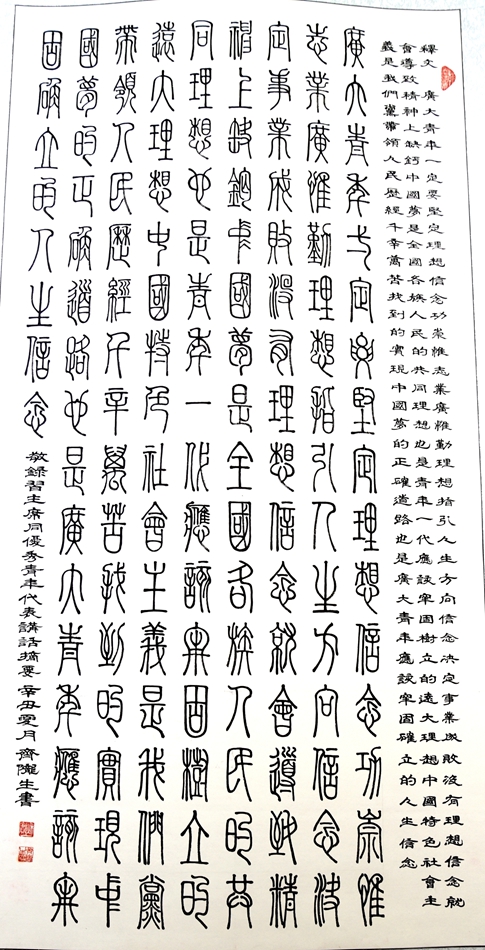 釋文 廣大青年一定要堅定理想信念功崇惟志業廣惟勤理想指引人生方向信念決定事業成敗沒有理想信念就
會導致精神上缺鈣中國夢是全國各族人民的共同理想也是青年一代應該牢固樹立的遠大理想中國特色社會主
義是我們黨帶領人民歷經千辛萬苦找到的實現中國夢的正確道路也是廣大青年應該牢固確立的人生信念
廣大青年弌定要堅定理想信念功崇惟
志業廣惟勤理想指引人生方向信念決
定事業成敗沒有理想信念就會導致精
神上缺鈣中國夢是全國各族人民的共
同理想也是青年一代應該牢固樹立的
遠大理想中國特色社會主義是我們黨
帶領人民歷經千辛萬苦找到的實現中
國夢的正確道路也是廣大青年應該牢
固確立的人生信念
敬錄習主席同優秀青年代表講話摘要 辛丑夏月 齊隴生書